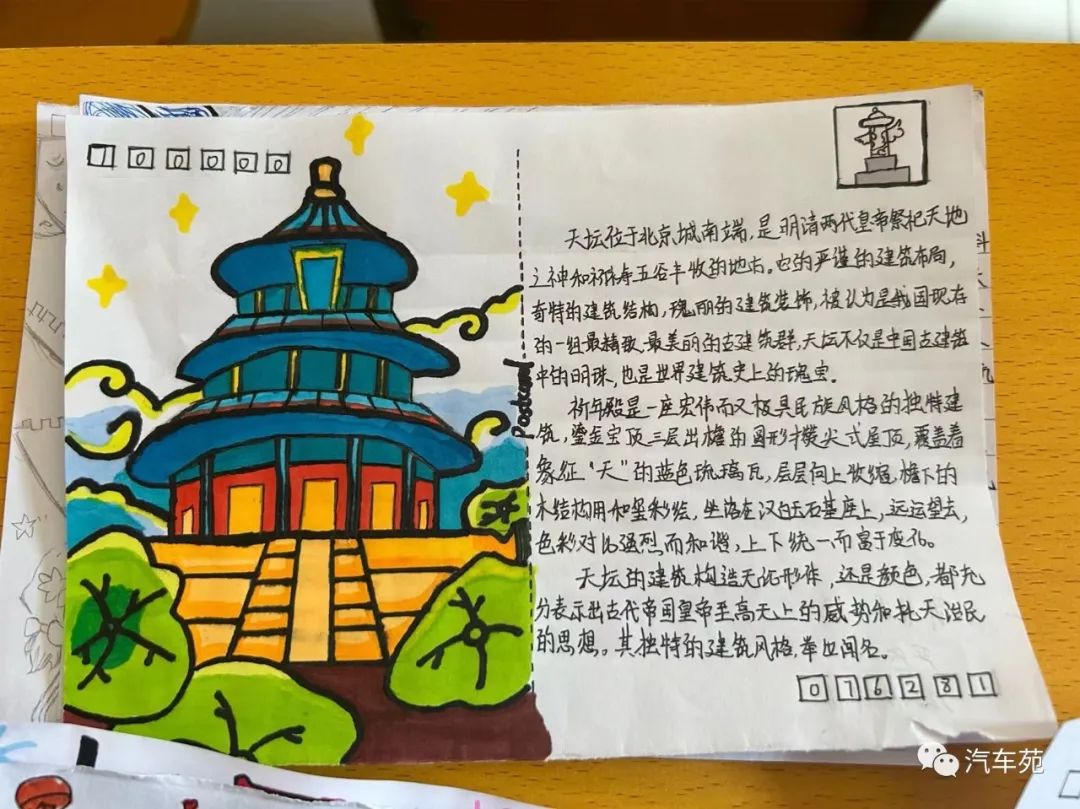 100000
天坛位于北京城南端,是明清两代皇帝祭祀天地
之神和祈祷五谷丰收的地方。它的严谨的建筑布局,
奇特的建筑结构,瑰丽的建筑装饰,被认为是我国现存
的一组最精致,最美丽的古建筑群,天坛不仅是中国古建筑
中的明珠,也是世界建筑史上的瑰宝。
Postcard
祈年殿是一座宏伟而又极具民族风格的独特建
筑,鎏金宝顶三层出檐的圆形攒尖式屋顶,覆盖着
象征“天”的蓝色琉璃瓦,层层向上收缩,檐下的
木结构用和玺彩绘,坐落在汉白玉石基座上,远远望去,
色彩对比强烈而和谐,上下统一而富于变化。
天坛的建筑构造无论形体,还是颜色,都充
分表示出古代帝国皇帝至高无上的威势和托天治民
的思想。其独特的建筑风格,举世闻名。
076281
汽车苑